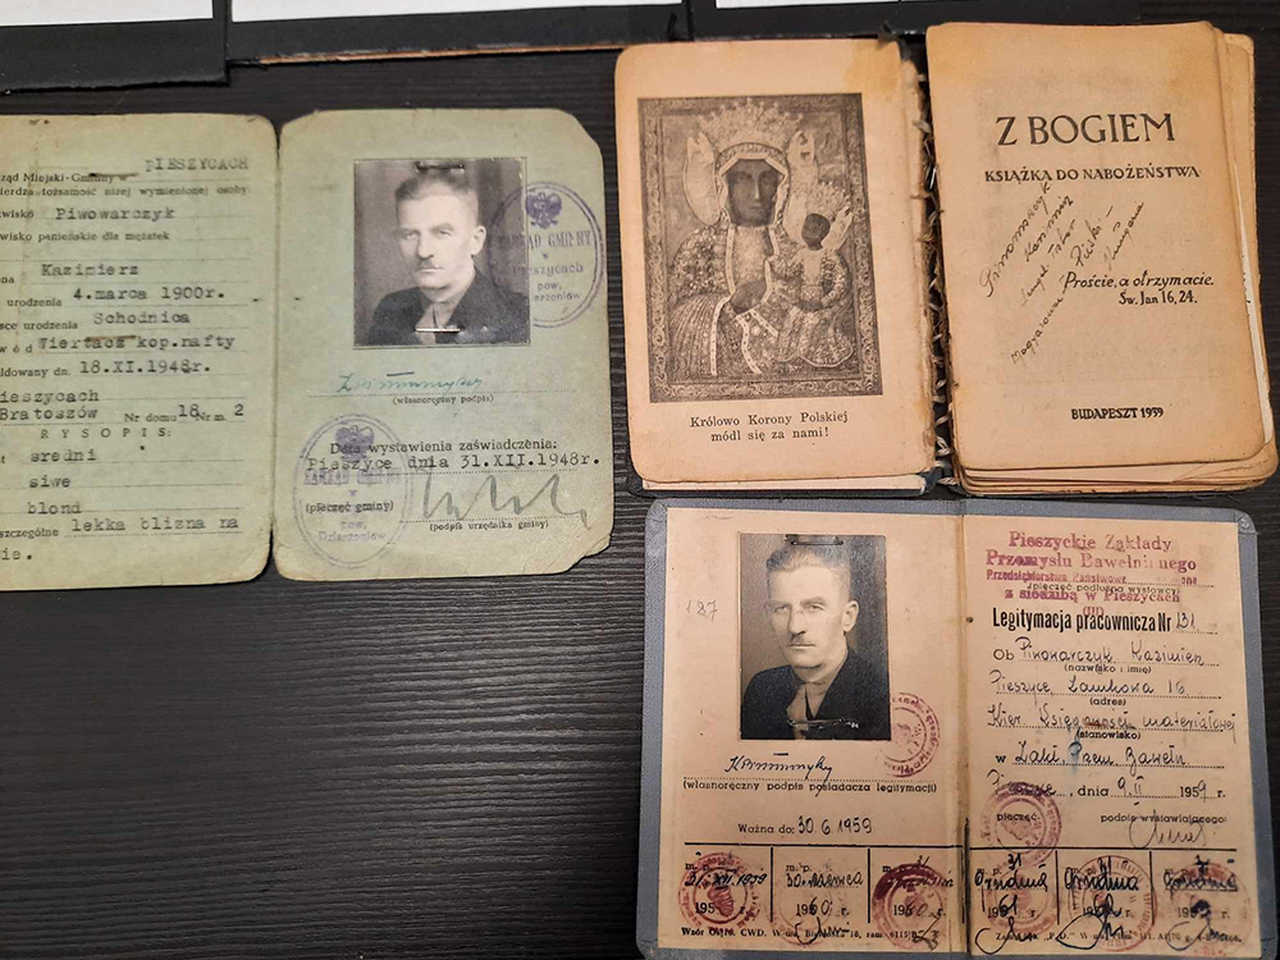 PIESZYCACH
ząd Miejski-Gminny w
ierdza tożsamość niżej wymienionej osoby:
zwisko Piwowarczyk
wisko panieńskie dla mężatek
Kazimierz
urodzenia 4.marca 1900r.
sce urodzenia Schodnica
wód Wiertacz kop.nafty
eldowany dn. 18.XI.1948r.
ieszycach
Bratoszów Nr domu 18 Nr m. 2
RYSOPIS:
średni
siwe
blond
szczególne lekka blizna na
ie.
ZARZĄD GMINNY
w
Pieszycach
pow.
(własnoręczny podpis)
Data wystawienia zaświadczenia:
Pieszyce dnia 31.XII.1948r.
(pieczęć gminy)
(podpis urzędnika gminy)
w
pow.
Dzierżoniów
Królowo Korony Polskiej
módl się za nami!
Z BOGIEM
KSIĄŻKA DO NABOŻEŃSTWA
Kazimierz
Proście, a otrzymacie.
Św. Jan 16, 24.
BUDAPESZT 1939
187
(własnoręczny podpis posiadacza legitymacji)
Ważna do: 30.6 1959
Pieszyckie Zakłady
Przemysłu Bawełnianego
Przedsiębiorstwo Państwowe
(pieczęć podłużna wystawcy)
z siedzibą w Pieszycach
Legitymacja pracownicza Nr 131
Ob Piwowarczyk Kazimierz
(nazwisko i imię)
Pieszyce, Zamkowa 16
(adres)
Kier. Księgowości materiałowej
(stanowisko)
w Zakł. Przem. Bawełn
, dnia 9.II 1959 r.
pieczęć podpis wystawiającego:
m.p. m.p. m.p. 31 31
31.XII.1959 30.czerwca grudnia grudnia
195 1960 r. 1960 r. 1961